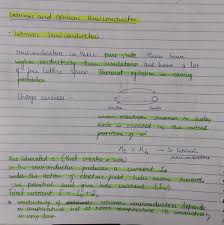 Intrinsic and extrinsic Semiconductor
Intrinsic Semiconductor
Semiconductor in their pure state. These have
higher conductivity than insulators and have a lot
of free lattice space. Thermal agitation is
possible
Charge carriers
when electron moves to
hole is created in the
position of e⁻
nₑ = nₕ → in intrinsic
semiconductors
The liberated e⁻ (that creates a hole)
in the semiconductors produces a current Iₑ
under the action of electric field holes moves towards
-ve potential and give hole current (Iₕ).
Total current I = Iₑ + Iₕ
conductivity of intrinsic semiconductor depends
on temperature but at room temperature its conductivity
is very low.